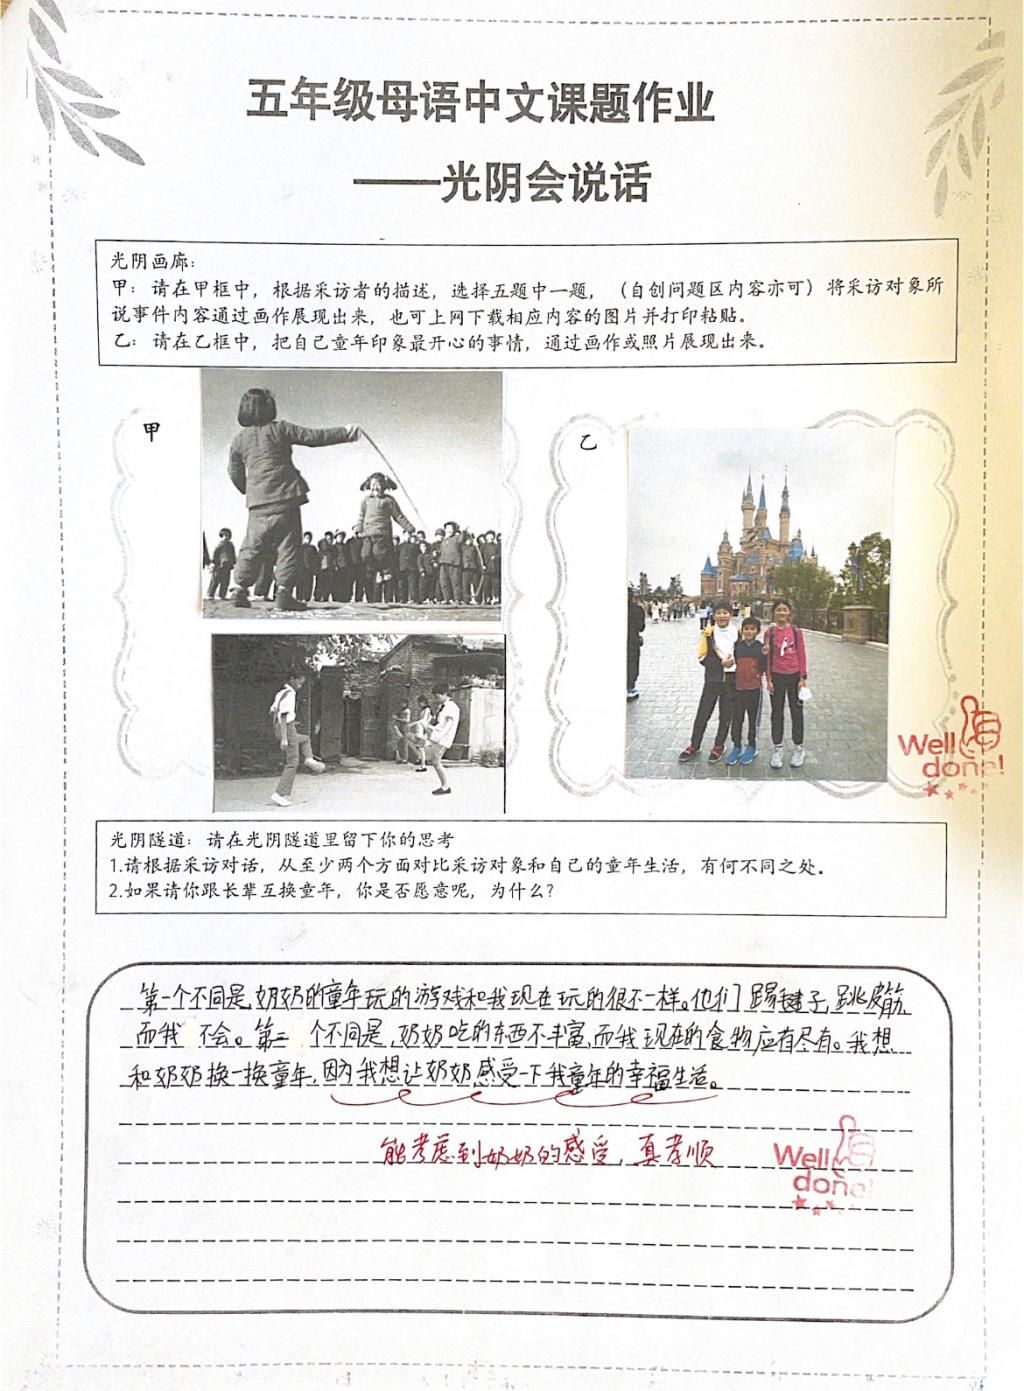 五年级母语中文课题作业
——光阴会说话
光阴画廊:
甲:请在甲框中,根据采访者的描述,选择五题中一题,(自创问题区内容亦可)将采访对象所
说事件内容通过画作展现出来,也可上网下载相应内容的图片并打印粘贴。
乙:请在乙框中,把自己童年印象最开心的事情,通过画作或照片展现出来。
甲
乙
Well
done!
光阴隧道:请在光阴隧道里留下你的思考
1.请根据采访对话,从至少两个方面对比采访对象和自己的童年生活,有何不同之处。
2.如果请你跟长辈互换童年,你是否愿意呢,为什么?
第一个不同是,奶奶的童年玩的游戏和我现在玩的很不一样。他们踢毽子,跳皮筋,
而我不会。第二个不同是,奶奶吃的东西不丰富,而我现在的食物应有尽有。我想
和奶奶换一换童年,因为我想让奶奶感受一下我童年的幸福生活。
能考虑到奶奶的感受,真孝顺
Well
done!